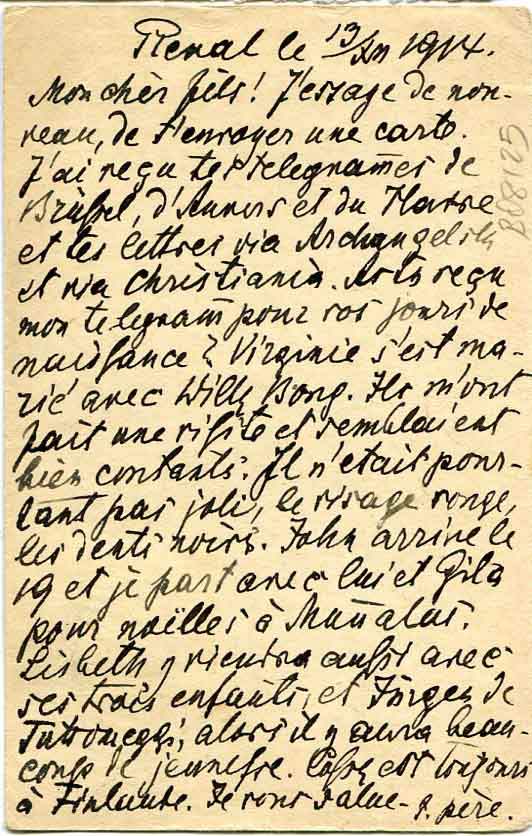 Reval le 13/XII 1914.
Mon cher fils! J'essaye de nou-
veau, de t'envoyer une carte.
J'ai reçu tes telegram̄es de
Brüssel, d'Anvers et du Havre
et tes lettres via Archangelsk
et via Christiania. As tu reçu
mon telegram̄ pour vos jours de
naissance? Virginie s'est ma-
rié avec Willy Bong. Ils m'ont
fait une visite et semblaient
bien contents. Il n'etait pour-
tant pas joli, le visage rouge,
les dents noirs. John arrive le
19 et je part avec lui et Gila
pour noëlles à Mañalas.
Lisbeth y viendra aussi avec
ses trois enfants, et Jürgen de
alors il y aura beau-
coup de jeunesse. est toujours
à Finlande. Je vous salue - t. père.
B08125